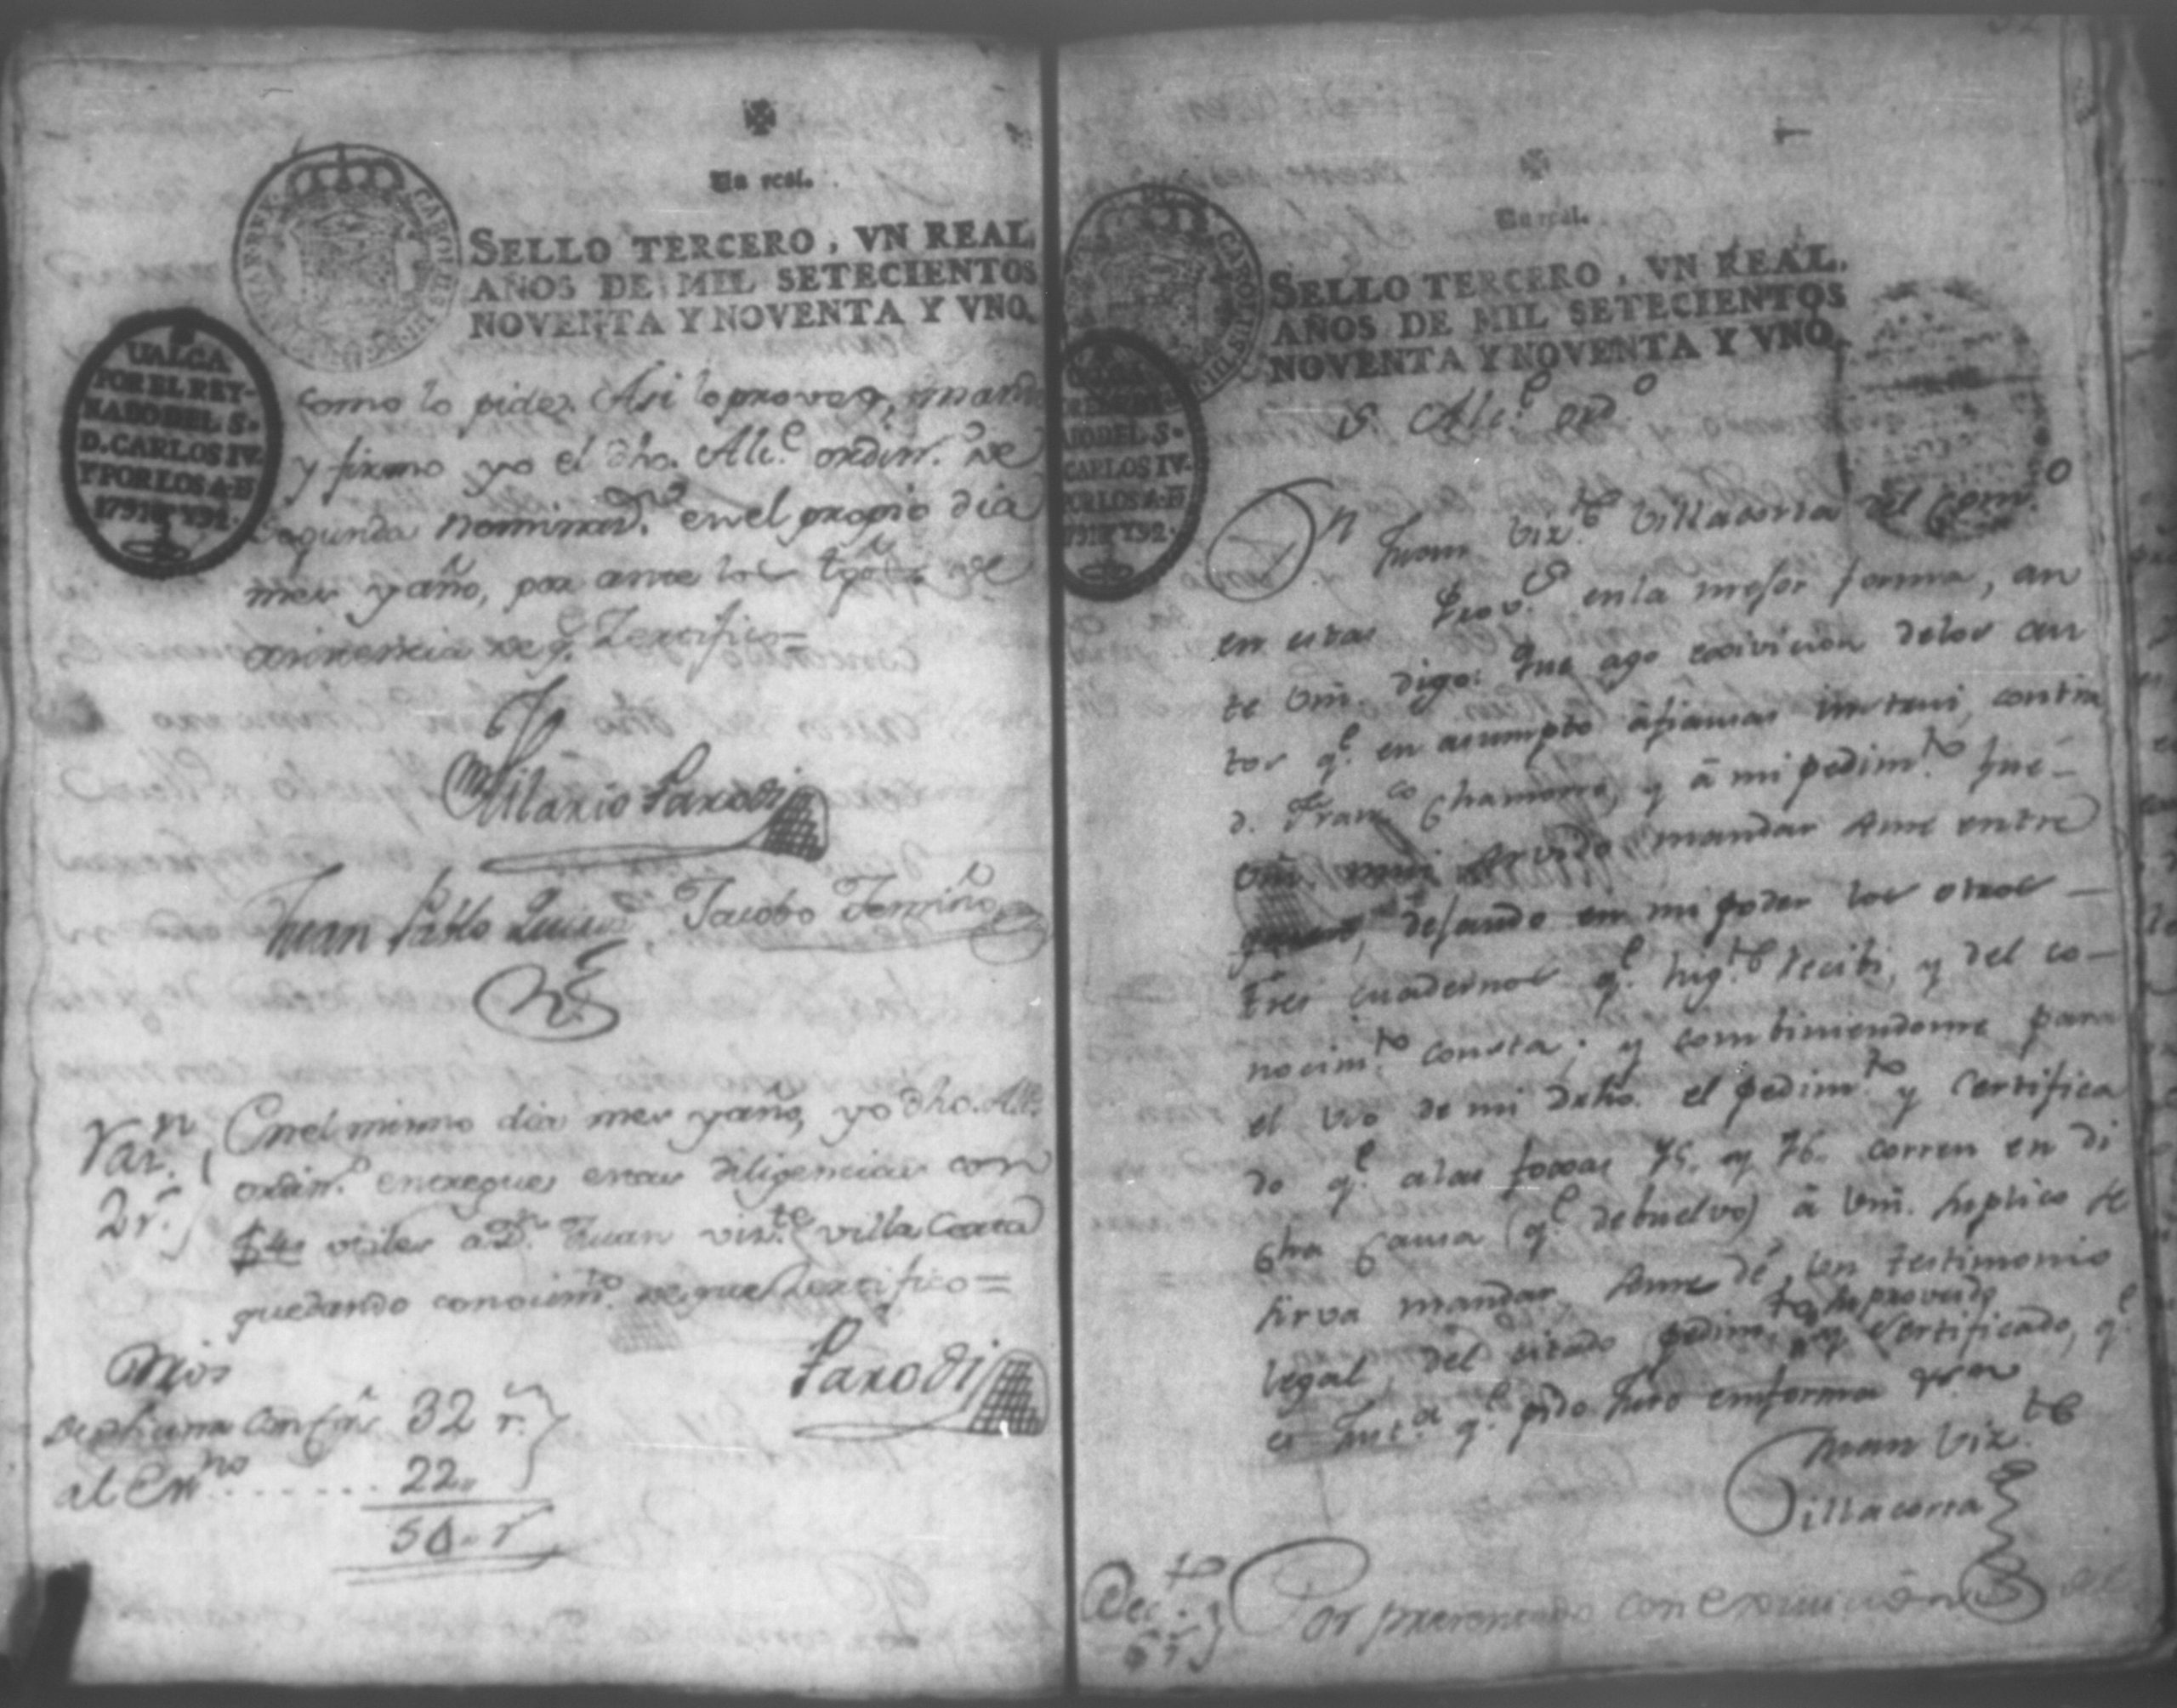 Un real.
SELLO TERCERO, VN REAL
AÑOS DE MIL SETECIENTOS
NOVENTA Y NOVENTA Y VNO.
VALGA
POR EL REY-
NADO DEL S.
D. CARLOS IV.
Y POR LOS A.
1791 Y 92.
como lo pide. Asi lo provey, mand
y firmo yo el dho. Alc.e ordin.o de
segunda nominas.n en el propio dia
mes y año, por ante los tgõs de
asistencia de q.e Zertifico=
Hilario Parodi
Juan Pablo Jacobo
En el mismo dia mes y año, yo dho. Alc.
ordin.o entregue estas diligencias con
utiles a D.n Juan vis.te villa Corta
quedando conosim.to de que Zertifico=
Parodi
Var.n
2 r.s
32 r.
al Es.no . . . . . . . 22..
54.. r
Un real.
SELLO TERCERO, VN REAL.
AÑOS DE MIL SETECIENTOS
NOVENTA Y NOVENTA Y VNO.
DEL S.
CARLOS IV.
POR LOS A.
Y 92.
S. Alc.e ord.o
D.n Juan Viz.te Villacorta del Com.o
en estas Prov.s en la mejor forma, an
te Vm̃. digo: Que ago exsivicion delos au
tos q.e en asumpto afiansas instaui contra
d. Fran.co Chamorro, y â mi pedim.to fue-
Vm̃. mui servido mandar seme entre
dejando en mi poder los otros
tres cuadernos q.e hig.te recibi, y del co-
nocim.to consta; y combiniendome para
el vso de mi dxho. el pedim.to y Certifica
do q.e alas foxas 75. y 76. corren en di
cha Causa (q.e debuelvo) â Vm̃. suplico se
sirva mandar, seme dé, un testimonio
legal del sitado pedim.to, su proveido
y Certificado, q.e
es Just.a q.e pido juro en forma
Juan Viz.te
Villacorta
Dec.to
Por presentado con exsivicion